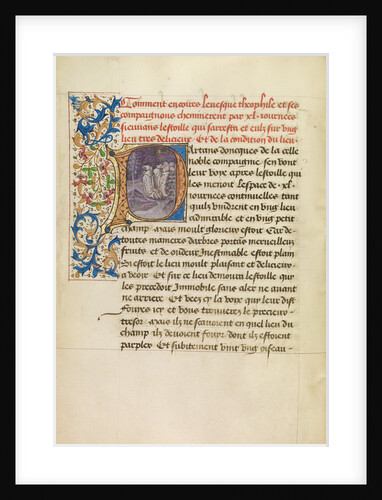 Comment encores levesque theophile et ses
compaignons chemmerent par xl. iournees
sieuuans lestoille qui sarresta et eulx sur vng
lieu tres delicieux. Et de la condition du lieu.
Partans doncques de la celle
noble compaignie sen vont
leur voye apres lestoille qui
les menoit lespace de .xl.
iournees continuelles tant
quilz vindrent en vng lieu
admirable et en vng petit
champ. mais moult glorieux estoit. Car de
toutes manieres darbres portans merueilleux
fruits et de oudeur Inestimable estoit plain
Si estoit le lieu moult plaisant et delicieux
a veoir. Et sur ce lieu demoura lestoille qui
les precedoit Immobile sans aler ne auant
ne arriere. Et veez cy la voix qui leur dist
Fouyes icy et vous trouuerez le precieux
tresor. Mais ilz ne scauoient en quel lieu du
champ ilz deuoient fouyr dont ilz estoient
parplex. Et subitement vint vng oiseau.